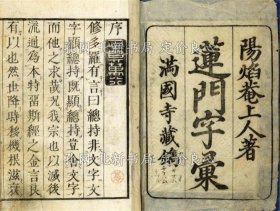 陽焰菴上人著
蓮門字彙
滿國寺藏
序
修多羅有言曰總持非文字文
字顯總持既顯總持豈舍文字
而他之求哉況我宗也以滅後
流通為本特留斯經之金言良
有以也然世降時移機根滋衰